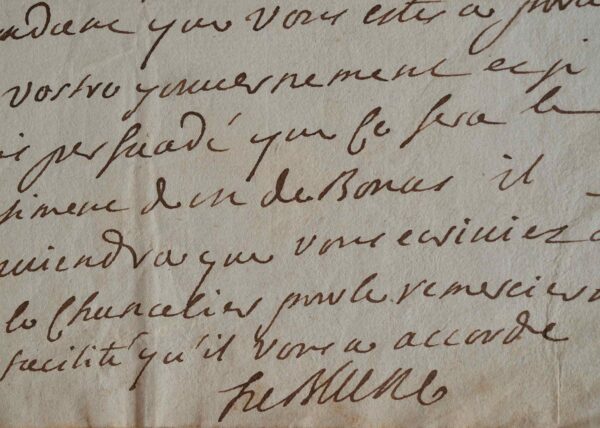 que vous estes a
vostre gouvernement et j
persuadé que ce sera le
siment de m de Bonas il
uiendra que vous ecriuiez a
le Chancelier pour le remercier
facilité qu'il vous a accordé